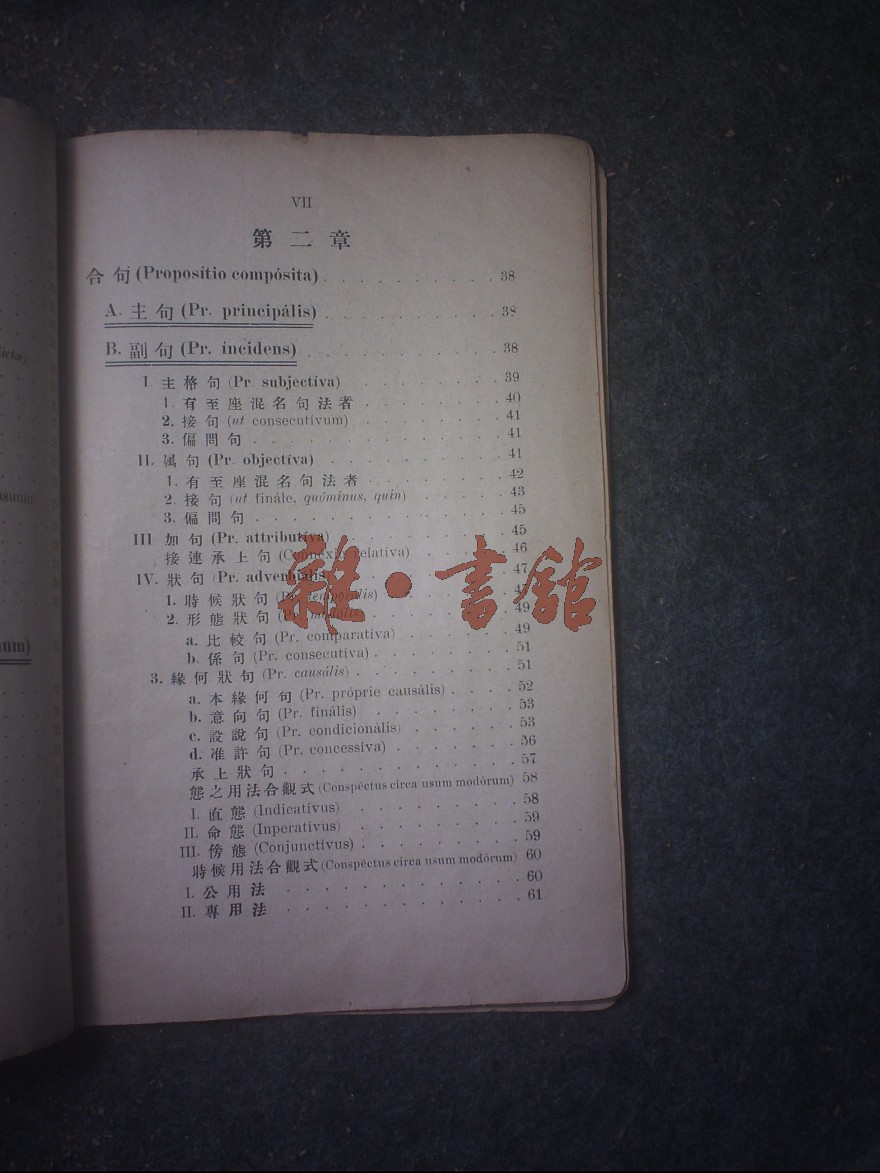 VII
第二章
合句 (Propositio compósita) 38
A. 主句 (Pr. principális) 38
B. 副句 (Pr. incidens) 38
I. 主格句 (Pr. subjectíva) 39
1. 有至座混名句法者 40
2. 接句 (ut consecutívum) 41
3. 偏問句 41
II. 属句 (Pr. objectíva) 41
1. 有至座混名句法者 42
2. 接句 (ut finále, quóminus, quin) 43
3. 偏問句 45
III 加句 (Pr. attributíva) 45
接連承上句 (Connéxio relativa) 46
IV. 狀句 (Pr. adverbiális) 47
1. 時候狀句 (Pr. temporális)
2. 形態狀句 (Pr. modális) 49
a. 比較句 (Pr. comparatíva) 49
b. 係句 (Pr. consecutíva) 51
3. 緣何狀句 (Pr. causális) 51
a. 本緣何句 (Pr. próprie causális) 52
b. 意向句 (Pr. finális) 53
c. 設說句 (Pr. condicionális) 53
d. 准許句 (Pr. concessíva) 56
承上狀句 57
態之用法合觀式 (Conspéctus circa usum modórum) 58
I. 直態 (Indicatívus) 58
II. 命態 (Inperatívus) 59
III. 傍態 (Conjunctívus) 59
時候用法合觀式 (Conspéctus circa usum modórum) 60
I. 公用法 60
II. 專用法 61
雜·書館